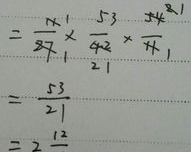 = 11/27 1 × 53/42 21 × 54/11 2 1 1
= 53/21
= 2 12